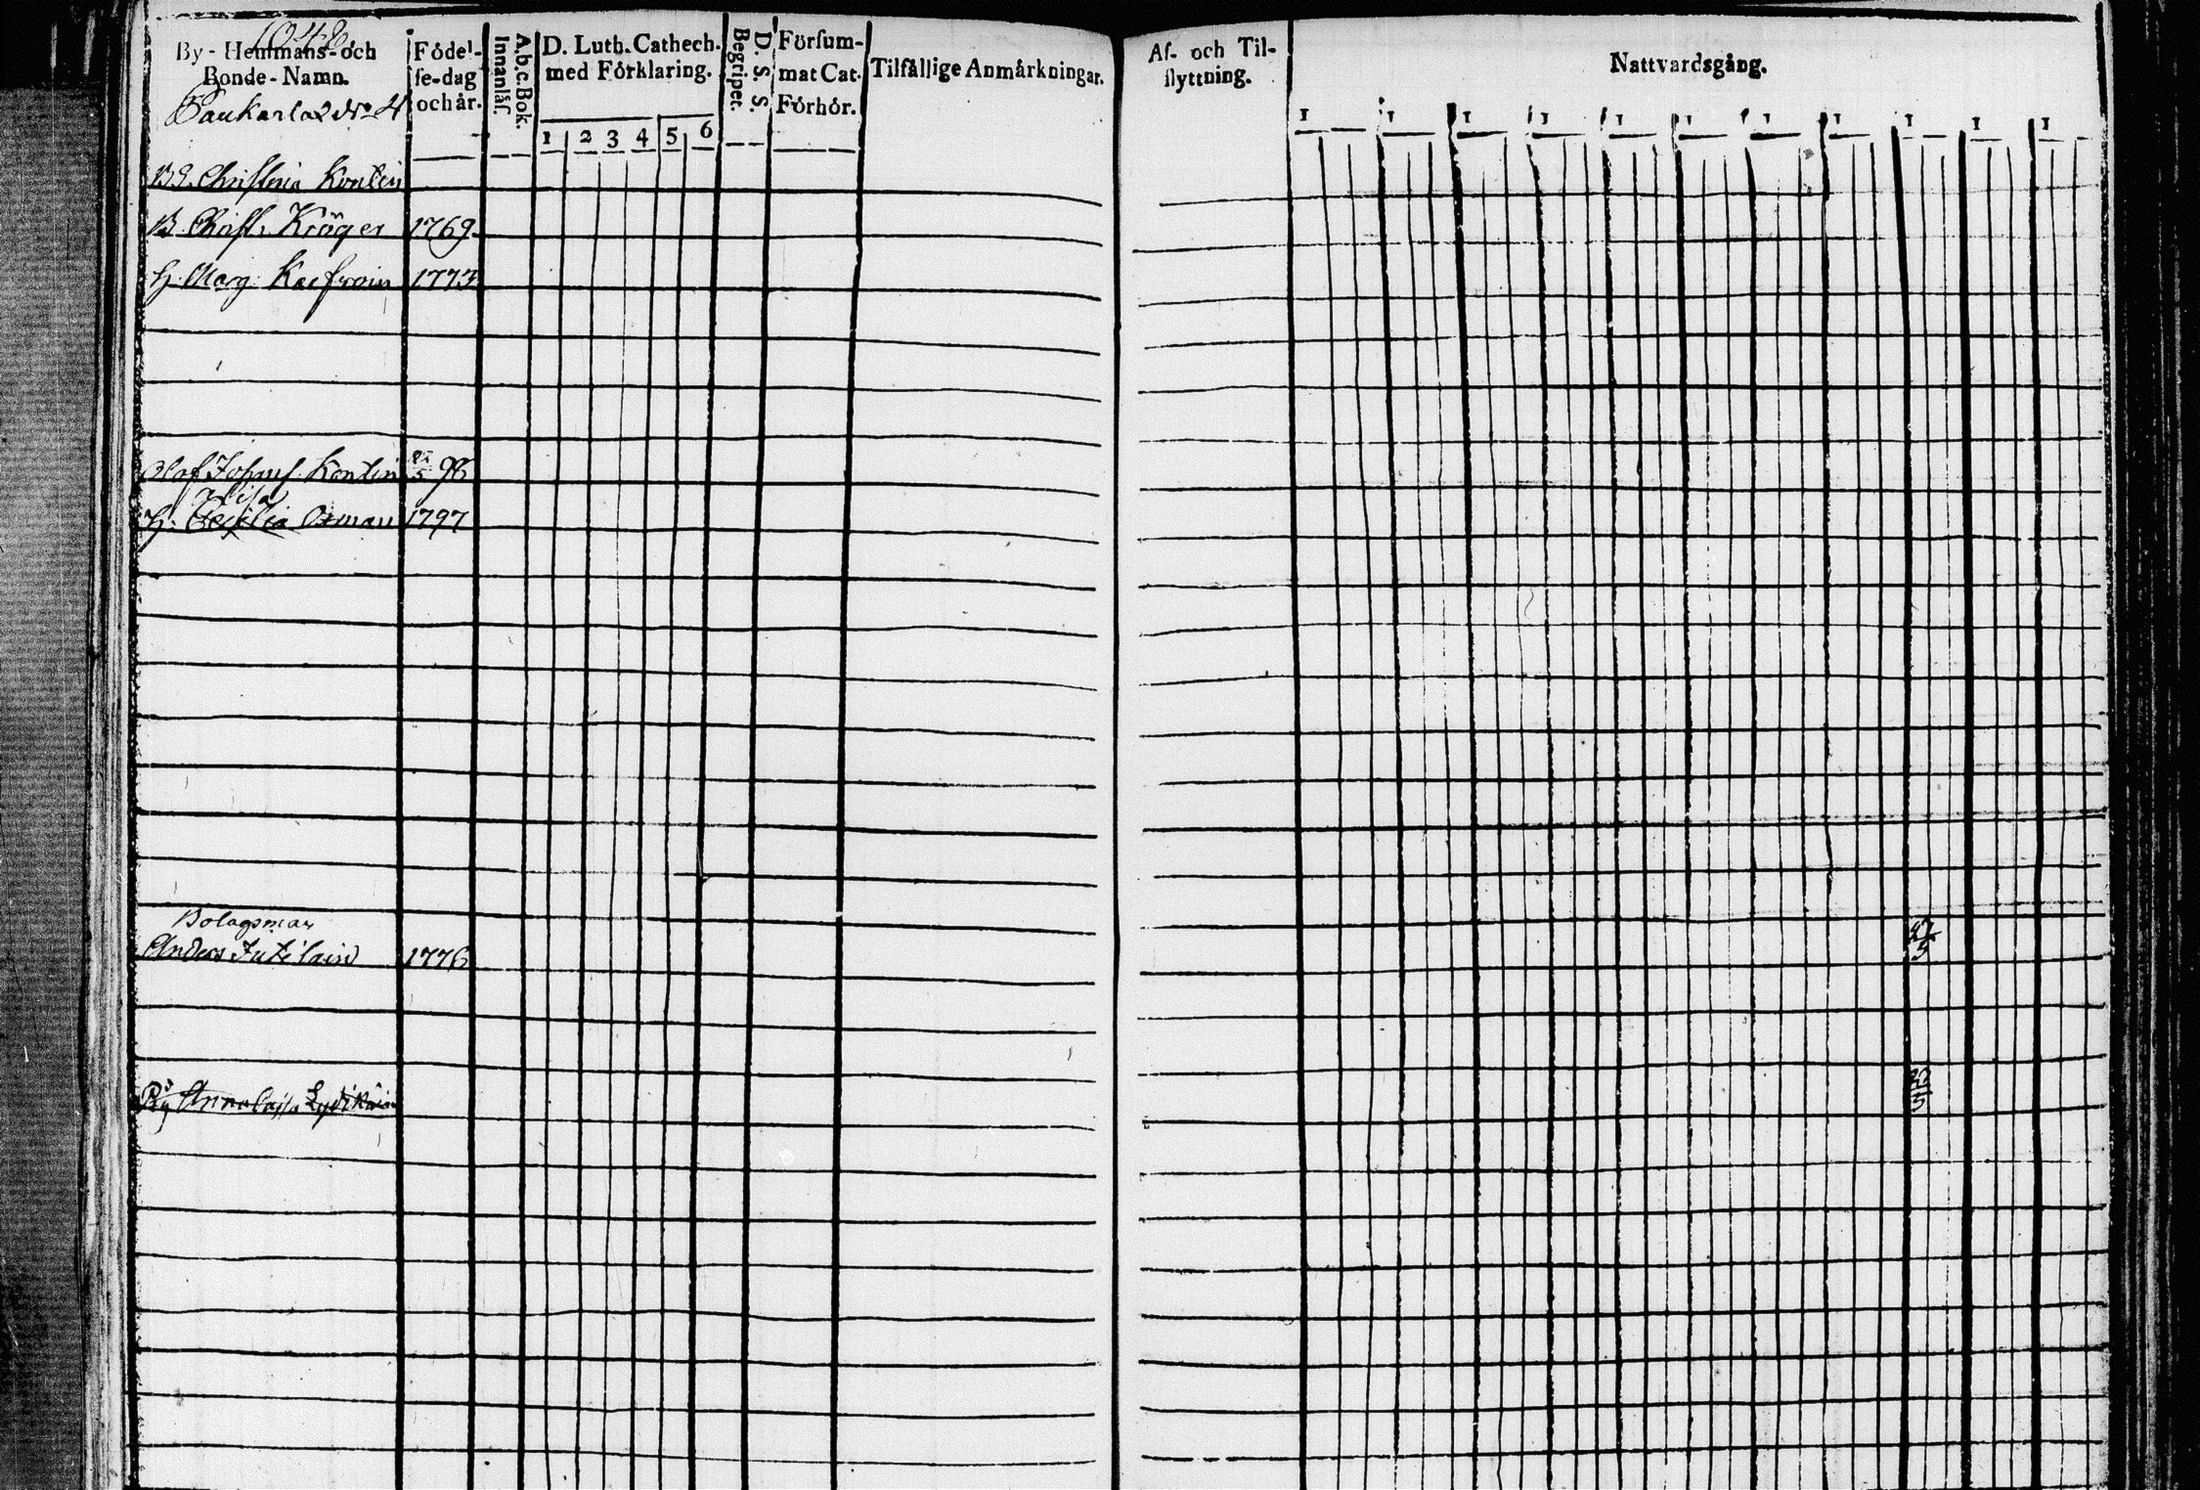 1048.
By-Hemmans-och Bonde-Namn.
Paukarlax No 4
Födel-se-dag och år.
A.b.c.Bok. Innanläs.
D. Luth. Cathech. med Förklaring.
1 2 3 4 5 6
D. S. S. Begriper.
Försum-mat Cat. Förhör.
Tilfällige Anmärkningar.
Af- och Til-flyttning.
Nattvardsgång.
1 1 1 1 1 1 1 1 1 1 1
Christina Kontin
B. Christ. Kröger 1769
H. Marg. 1773
Olof Kontin 96
Lisa
H. Cecilia Oxman 1797
Bolagsman
Anders Jutilain 1776
27/5
Anna Cajsa Lydikäin